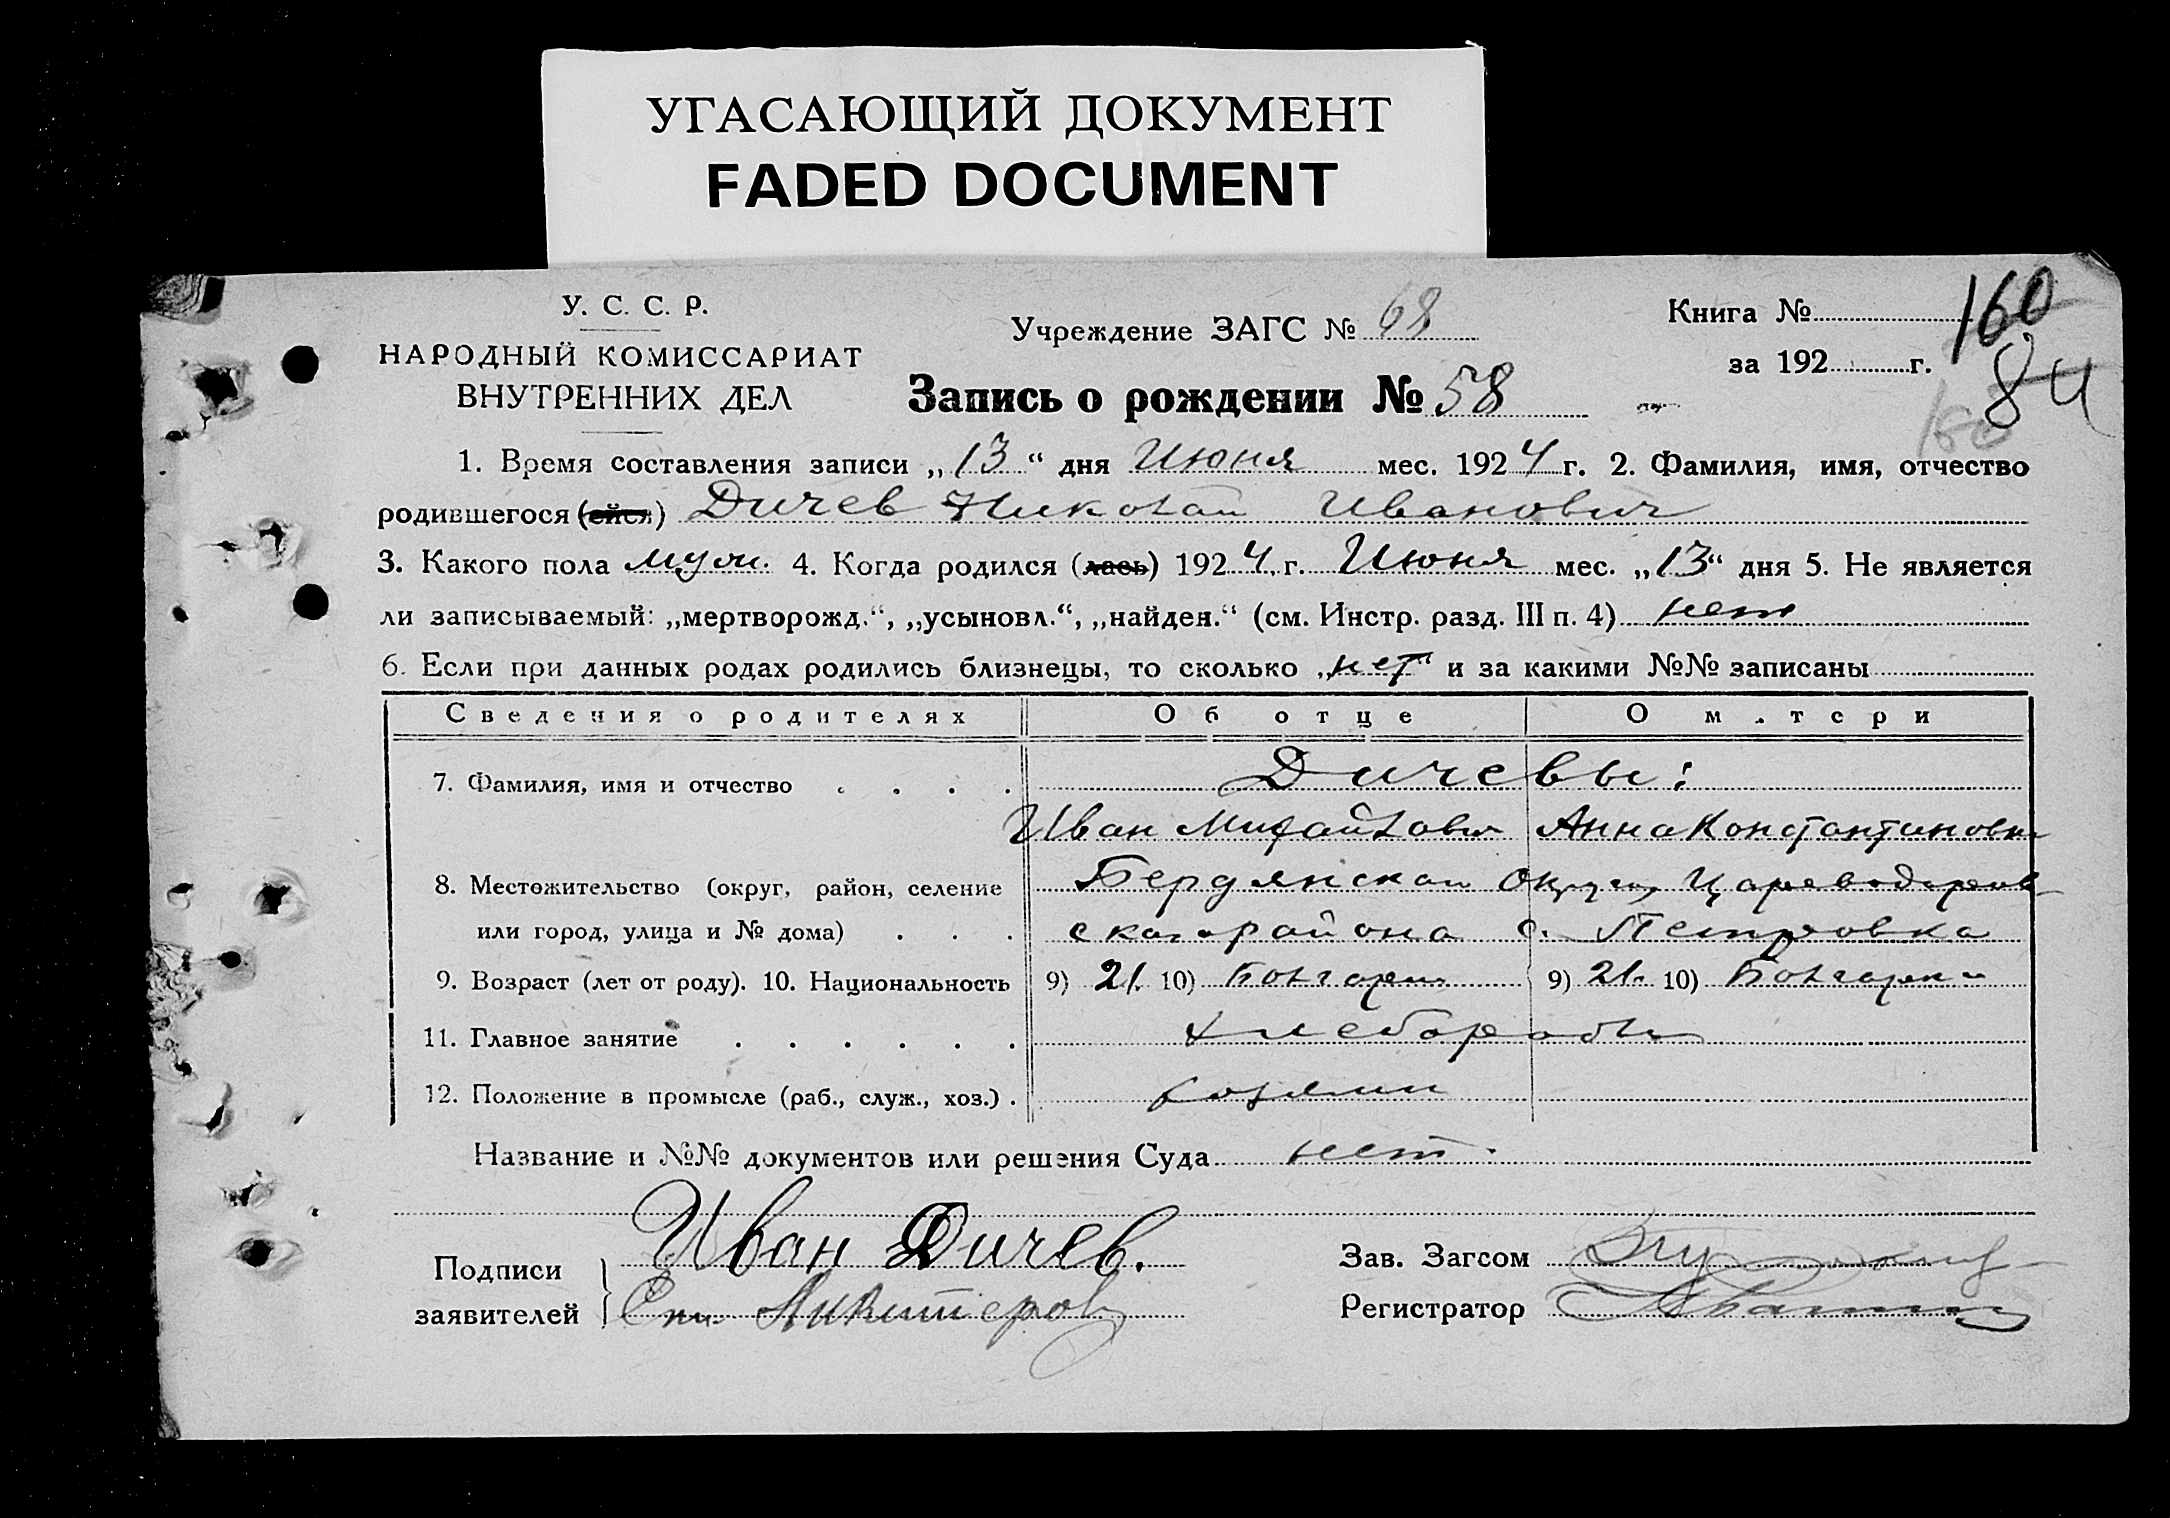 УГАСАЮЩИЙ ДОКУМЕНТ
FADED DOCUMENT
У. С. С. Р.
НАРОДНЫЙ КОМИССАРИАТ
ВНУТРЕННИХ ДЕЛ
Учреждение ЗАГС № 68
Книга № 160
за 192 г.
84
160
Запись о рождении № 58
1. Время составления записи „13“ дня Июня мес. 1924 г. 2. Фамилия, имя, отчество
родившегося (ейся) Дичев Николай Иванович
3. Какого пола муж. 4. Когда родился (лась) 1924 г. Июня мес. „13“ дня 5. Не является
ли записываемый: „мертворожд.“, „усыновл.“, „найден.“ (см. Инстр. разд. III п. 4) нет
6. Если при данных родах родились близнецы, то сколько „нет“ и за какими №№ записаны
Сведения о родителях Об отце О м.тери
7. Фамилия, имя и отчество . . . . Дичевы:
Иван Михайлович Анна Константиновна
8. Местожительство (округ, район, селение Бердянской округи, Цареводаров-
или город, улица и № дома) . . . ского района с. Петровка
9. Возраст (лет от роду). 10. Национальность 9) 21. 10) Болгарин 9) 21. 10) Болгарки
11. Главное занятие . . . . . . Хлеборобы
12. Положение в промысле (раб., служ., хоз.) . хозяин
Название и №№ документов или решения Суда нет.
Подписи
заявителей
Иван Дичев.
Зав. Загсом
Регистратор